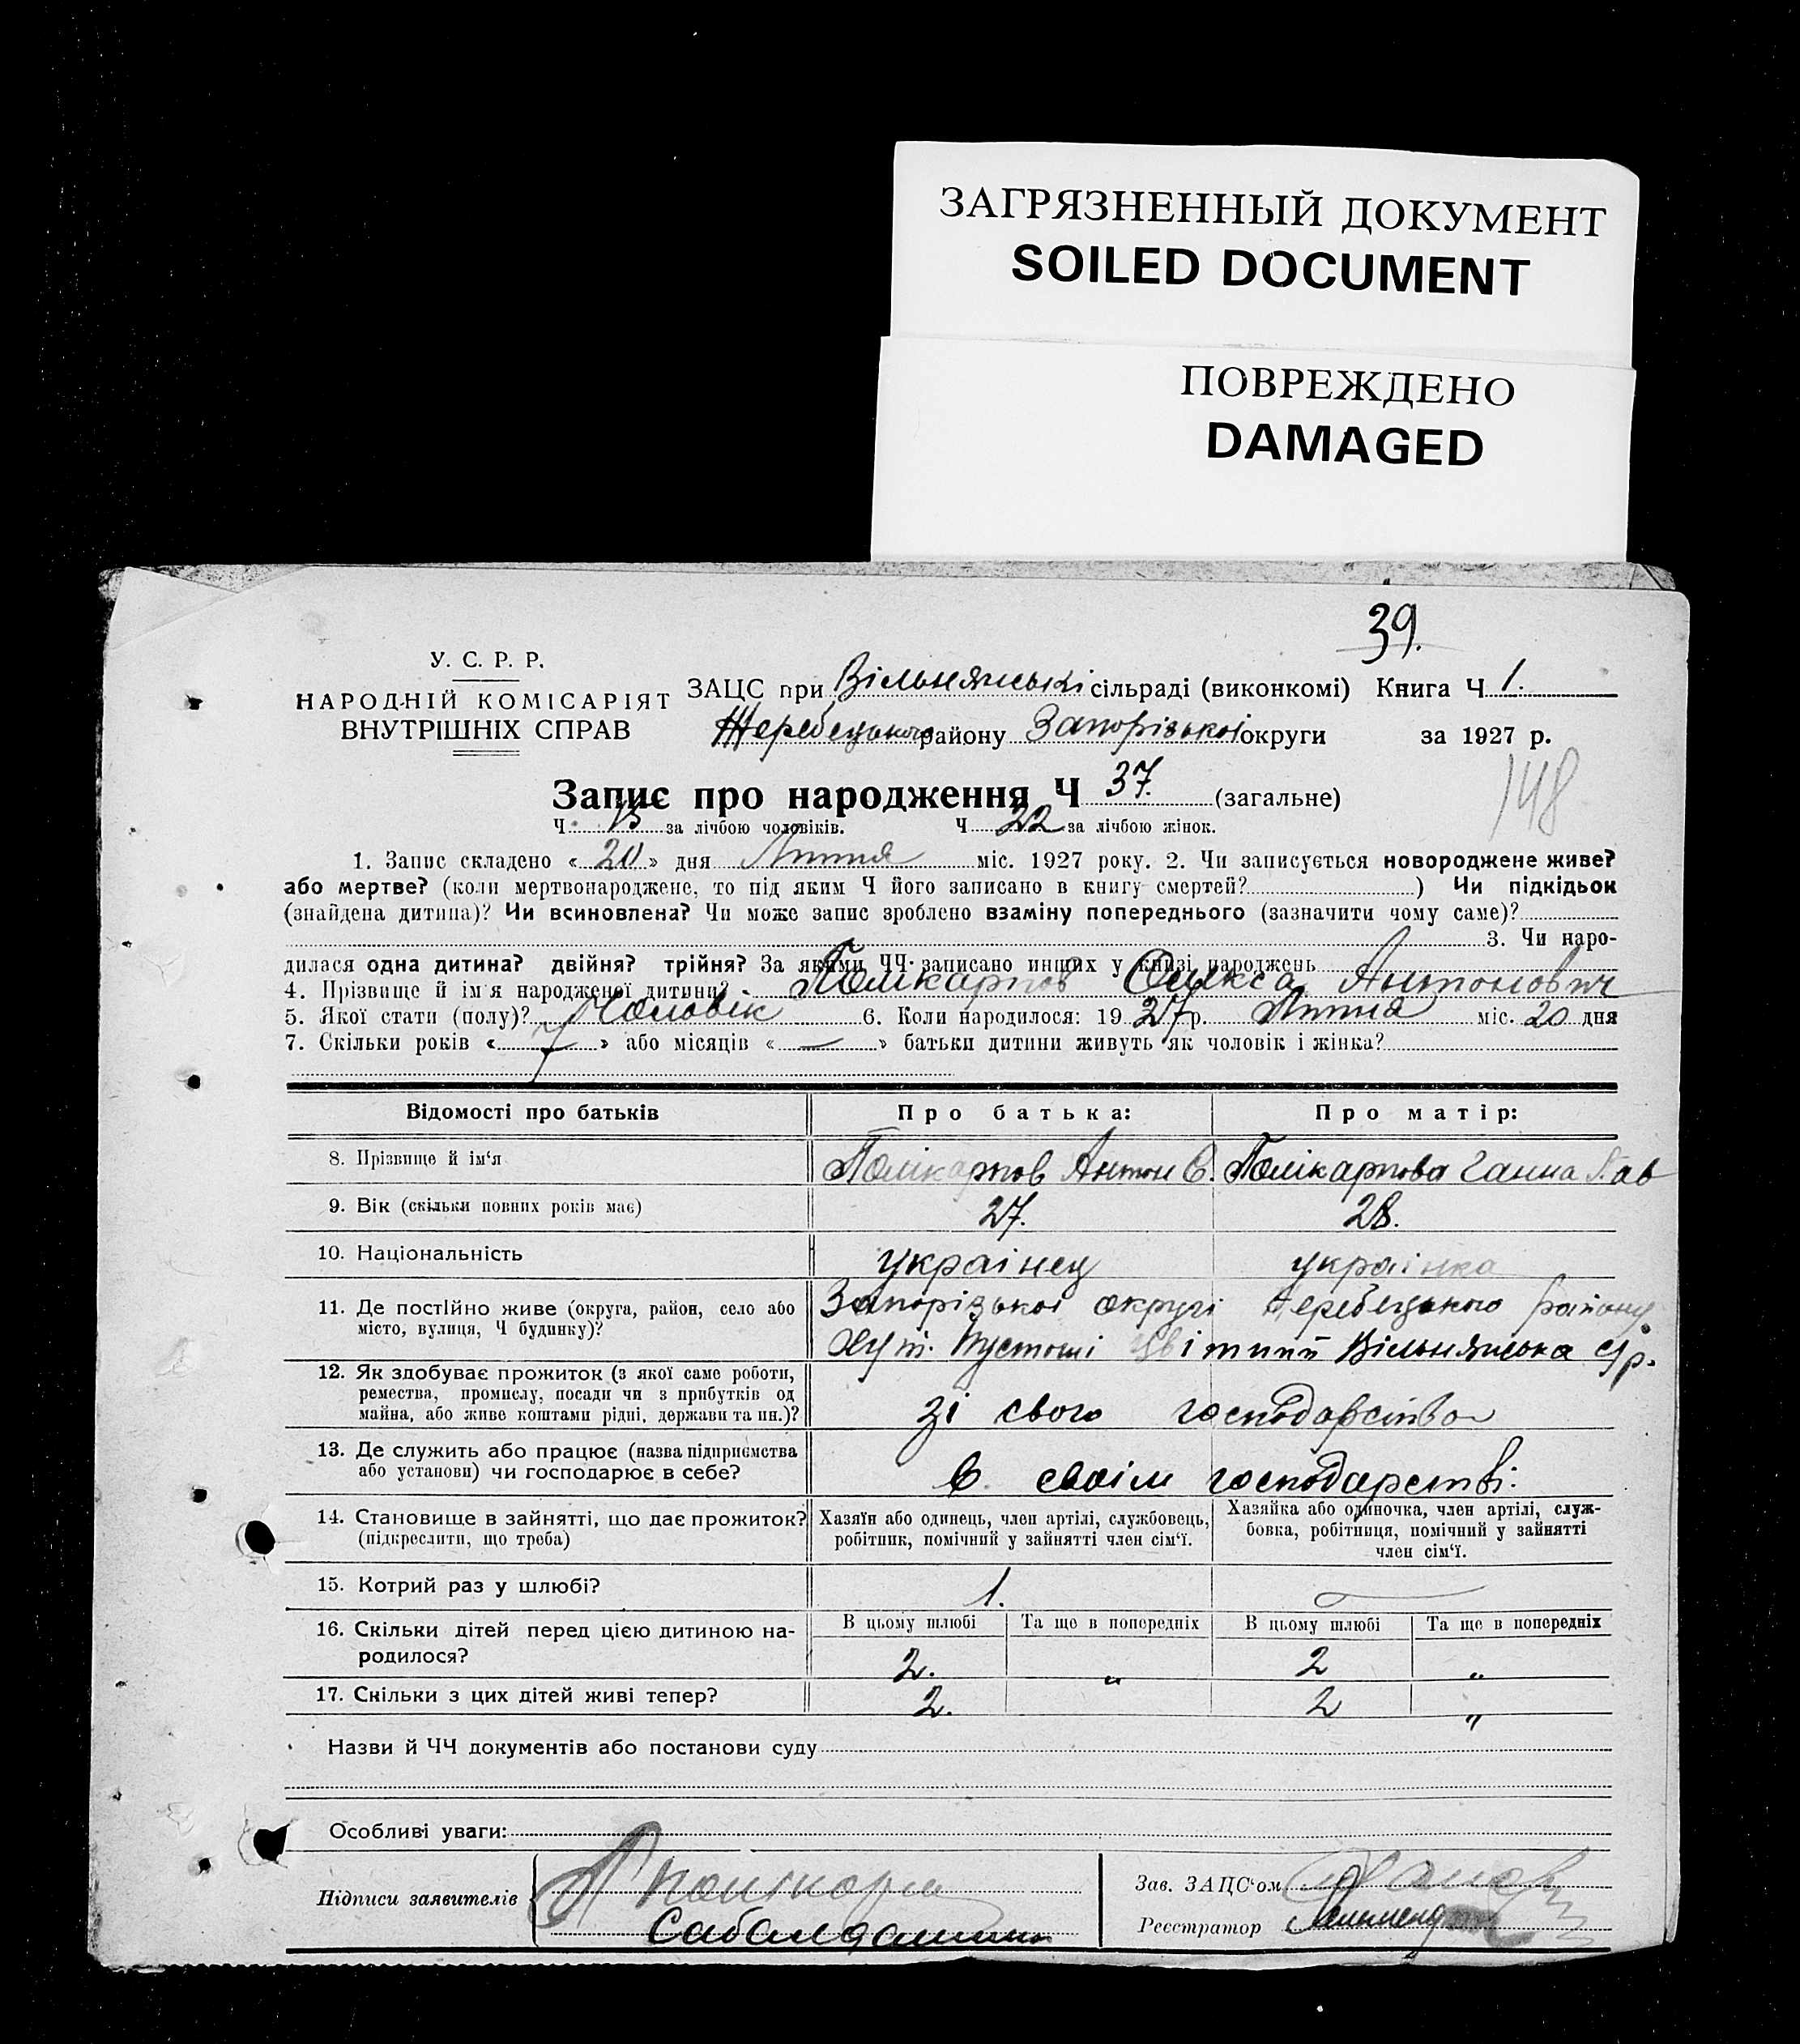 ЗАГРЯЗНЕННЫЙ ДОКУМЕНТ
SOILED DOCUMENT
ПОВРЕЖДЕНО
DAMAGED
39.
У. С. Р. Р.
НАРОДНІЙ КОМІСАРІЯТ
ВНУТРІШНІХ СПРАВ
ЗАЦС при Вільнянські сільраді (виконкомі) Книга Ч 1.
Жеребецького району Запорізької округи за 1927 р.
148
Запис про народження Ч 37. (загальне)
Ч 15 за лічбою чоловіків. Ч 22 за лічбою жінок.
1. Запис складено « 20 » дня Липня міс. 1927 року. 2. Чи записується новороджене живе?
або мертве? (коли мертвонароджене, то під яким Ч його записано в книгу смертей? ) Чи підкідьок
(знайдена дитина)? Чи всиновлена? Чи може запис зроблено взаміну попереднього (зазначити чому саме)?
3. Чи наро-
дилася одна дитина? двійня? трійня? За якими ЧЧ записано инших у книзі народжень
4. Прізвище й ім'я народженої дитини? Полікарпов Олекса Антонович
5. Якої стати (полу)? Чоловік 6. Коли народилося: 1927 р. Липня міс. 20 дня
7. Скільки років « 7 » або місяців « — » батьки дитини живуть як чоловік і жінка?
Відомості про батьків Про батька: Про матір:
8. Прізвище й ім'я Полікарпов Антон С. Полікарпова Ганна Пав
9. Вік (скільки повних років має) 27. 28.
10. Національність українец українка
11. Де постійно живе (округа, район, село або
місто, вулиця, Ч будинку)?
Запорізької округі Жеребецького району
Хут. Цвітний Вільнянська с/р.
12. Як здобуває прожиток (з якої саме роботи,
ремества, промислу, посади чи з прибутків од
майна, або живе коштами рідні, держави та ин.)?
зі свого господарства
13. Де служить або працює (назва підприємства
або установи) чи господарює в себе?
в своїм господарстві.
14. Становище в зайнятті, що дає прожиток?
(підкреслити, що треба)
Хазяїн або одинець, член артілі, службовець,
робітник, помічний у зайнятті член сім'ї.
Хазяйка або одиночка, член артілі, служ-
бовка, робітниця, помічний у зайнятті
член сім'ї.
15. Котрий раз у шлюбі? 1. —
16. Скільки дітей перед цією дитиною на-
родилося?
В цьому шлюбі Та ще в попередніх В цьому шлюбі Та ще в попередніх
2. „ 2 „
17. Скільки з цих дітей живі тепер? 2. 2 „
Назви й ЧЧ документів або постанови суду
Особливі уваги:
Підписи заявителів
Зав. ЗАЦС'ом
Реєстратор